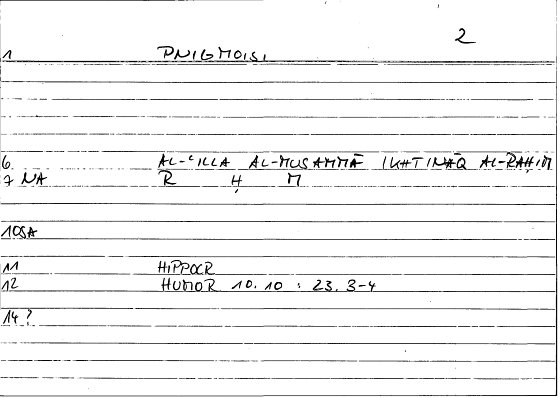 2
1 PNIGMOISI
6 AL-ʿILLA AL-MUSAMMĀ IKHTINĀQ AL-RAḤIM
7 NA R Ḥ M
10SA
11 HIPPOCR
12 HUMOR 10.10 : 23.3-4
14 ?